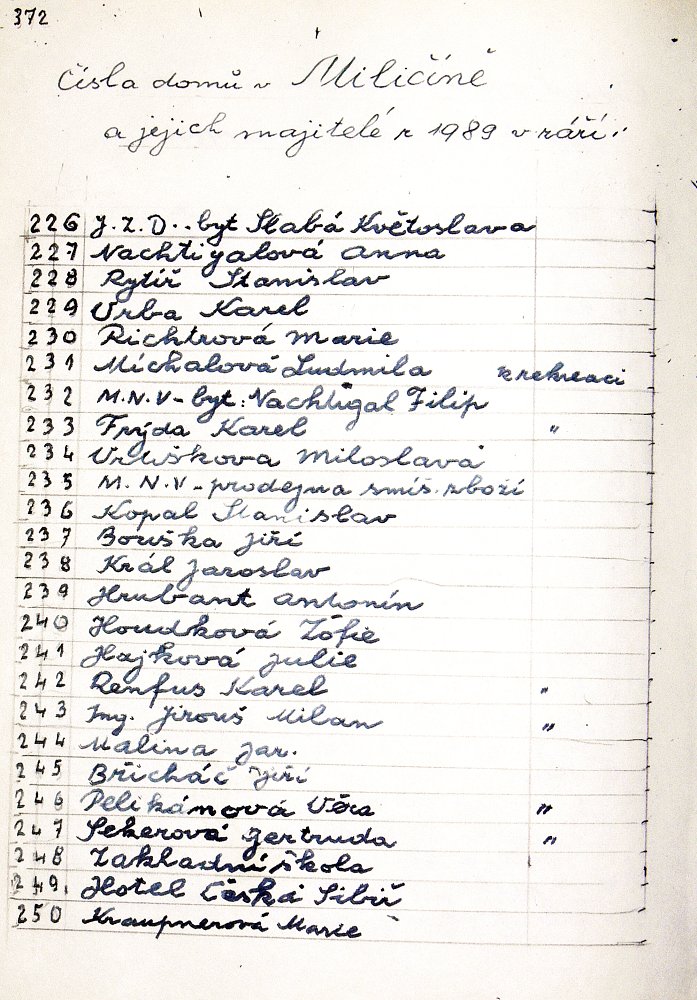 372
Čísla domů v Miličíně
a jejich majitelé r 1989 v září:
226 J.Z.D.. byt Slabá Květoslava
227 Nachtigalová Anna
228 Rytíř Stanislav
229 Vrba Karel
230 Richtrová Marie
231 Michalová Ludmila k rekreaci
232 M.N.V - byt: Nachtigal Filip
233 Frýda Karel "
234 Miloslava
235 M.N.V - prodejna smíš. zboží
236 Kopal Stanislav
237 Bouška Jiří
238 Král Jaroslav
239 Hrubant Antonín
240 Houdková Žofie
241 Hajková Julie
242 Renfus Karel "
243 Ing. Jirouš Milan "
244 Malina Jar.
245 Břicháč Jiří
246 Pelikánová Věra "
247 Sekerová Gertruda "
248 Zakladní škola
249. Hotel Česká Sibiř
250 Kraupnerová Marie